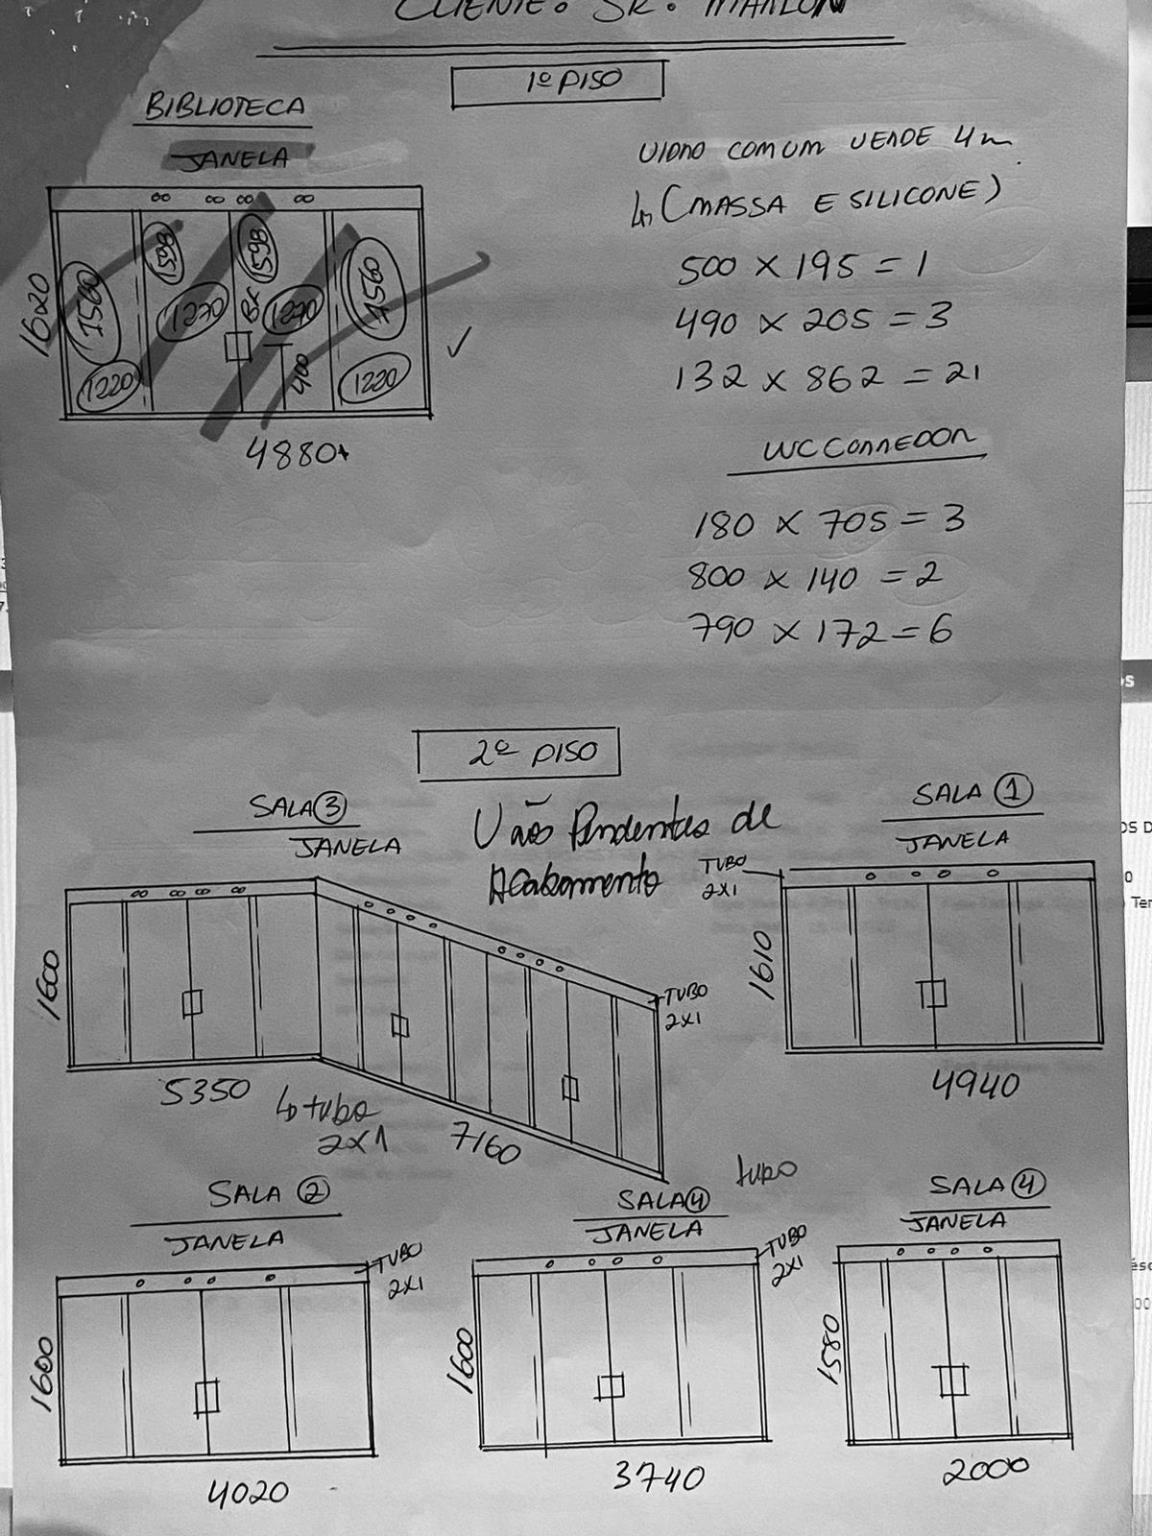 CLIENTE: SR. MARLON
1º PISO
BIBLIOTECA
JANELA
1620
1560
1598
1270
1220
1598
Br
1270
400
1560
1220
4880
VIDRO COMUM VERDE 4m
(MASSA E SILICONE)
500 X 195 = 1
490 X 205 = 3
132 X 862 = 21
WC CORREDOR
180 X 705 = 3
800 X 140 = 2
790 X 172 = 6
2º PISO
Vãos Pendentes de
Acabamento
SALA 3
JANELA
1600
5350
tubo
2x1
7160
TUBO
2X1
SALA 1
JANELA
TUBO
2X1
1610
4940
SALA 2
JANELA
TUBO
2X1
1600
4020
SALA 4
JANELA
tubo
TUBO
2X1
1600
3740
SALA 4
JANELA
1580
2000